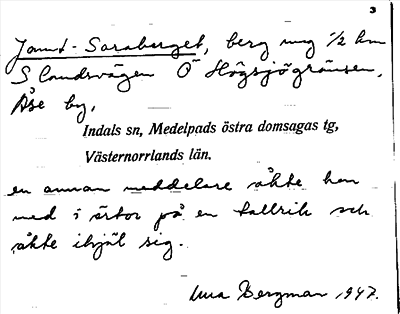 3
Jamt-Saraberget, berg ung ½ km
S landsvägen O Högsjögränsen,
Åse by,
Indals sn, Medelpads östra domsagas tg,
Västernorrlands län.
en annan meddelare åkte han
ned i ärtor på en tallrik och
åkte ihjäl sig.
Bergman 1947.